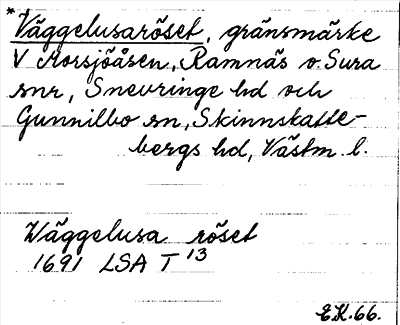 *Väggelusaröset, gränsmärke
V Korsjöåsen, Ramnäs o. Sura
snr, Snevringe hd och
Gunnilbo sn, Skinnskatte-
bergs hd, Västm. l.
Wäggelusa röset
1691 LSA T 13
E.K. 66.